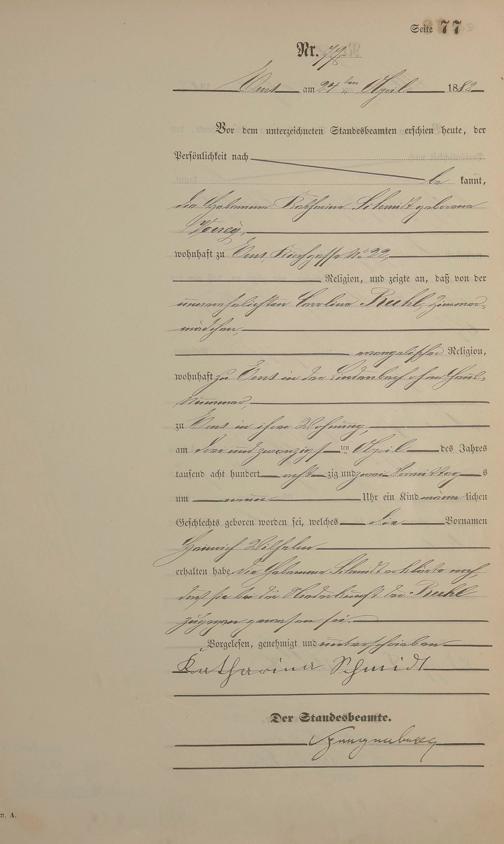 Seite 77
Nr. 78
Ems am 24ten April 1882
Vor dem unterzeichneten Standesbeamten erschien heute, der
Persönlichkeit nach
be kannt,
die Hebamme Katharina Schmidt geborene
wohnhaft zu Ems Kirchgasse No 22,
Religion, und zeigte an, daß von der
unverehelichten Carolina Ruhl, Zimmer-
mädchen,
evangelischer Religion,
wohnhaft zu Ems in der Lindenbach ohne Haus-
nummer,
zu Ems in ihrer Wohnung,
am ten April des Jahres
tausend acht hundert acht zig und zwei Vormittag s
um neun Uhr ein Kind männ lichen
Geschlechts geboren worden sei, welches die Vornamen
Heinrich Wilhelm
erhalten habe. Die Hebamme Schmidt erklärte noch,
daß sie bei der Niederkunft der Ruhl
zugegen gewesen sei.
Vorgelesen, genehmigt und unterschrieben
Katharina Schmidt
Der Standesbeamte.
A.